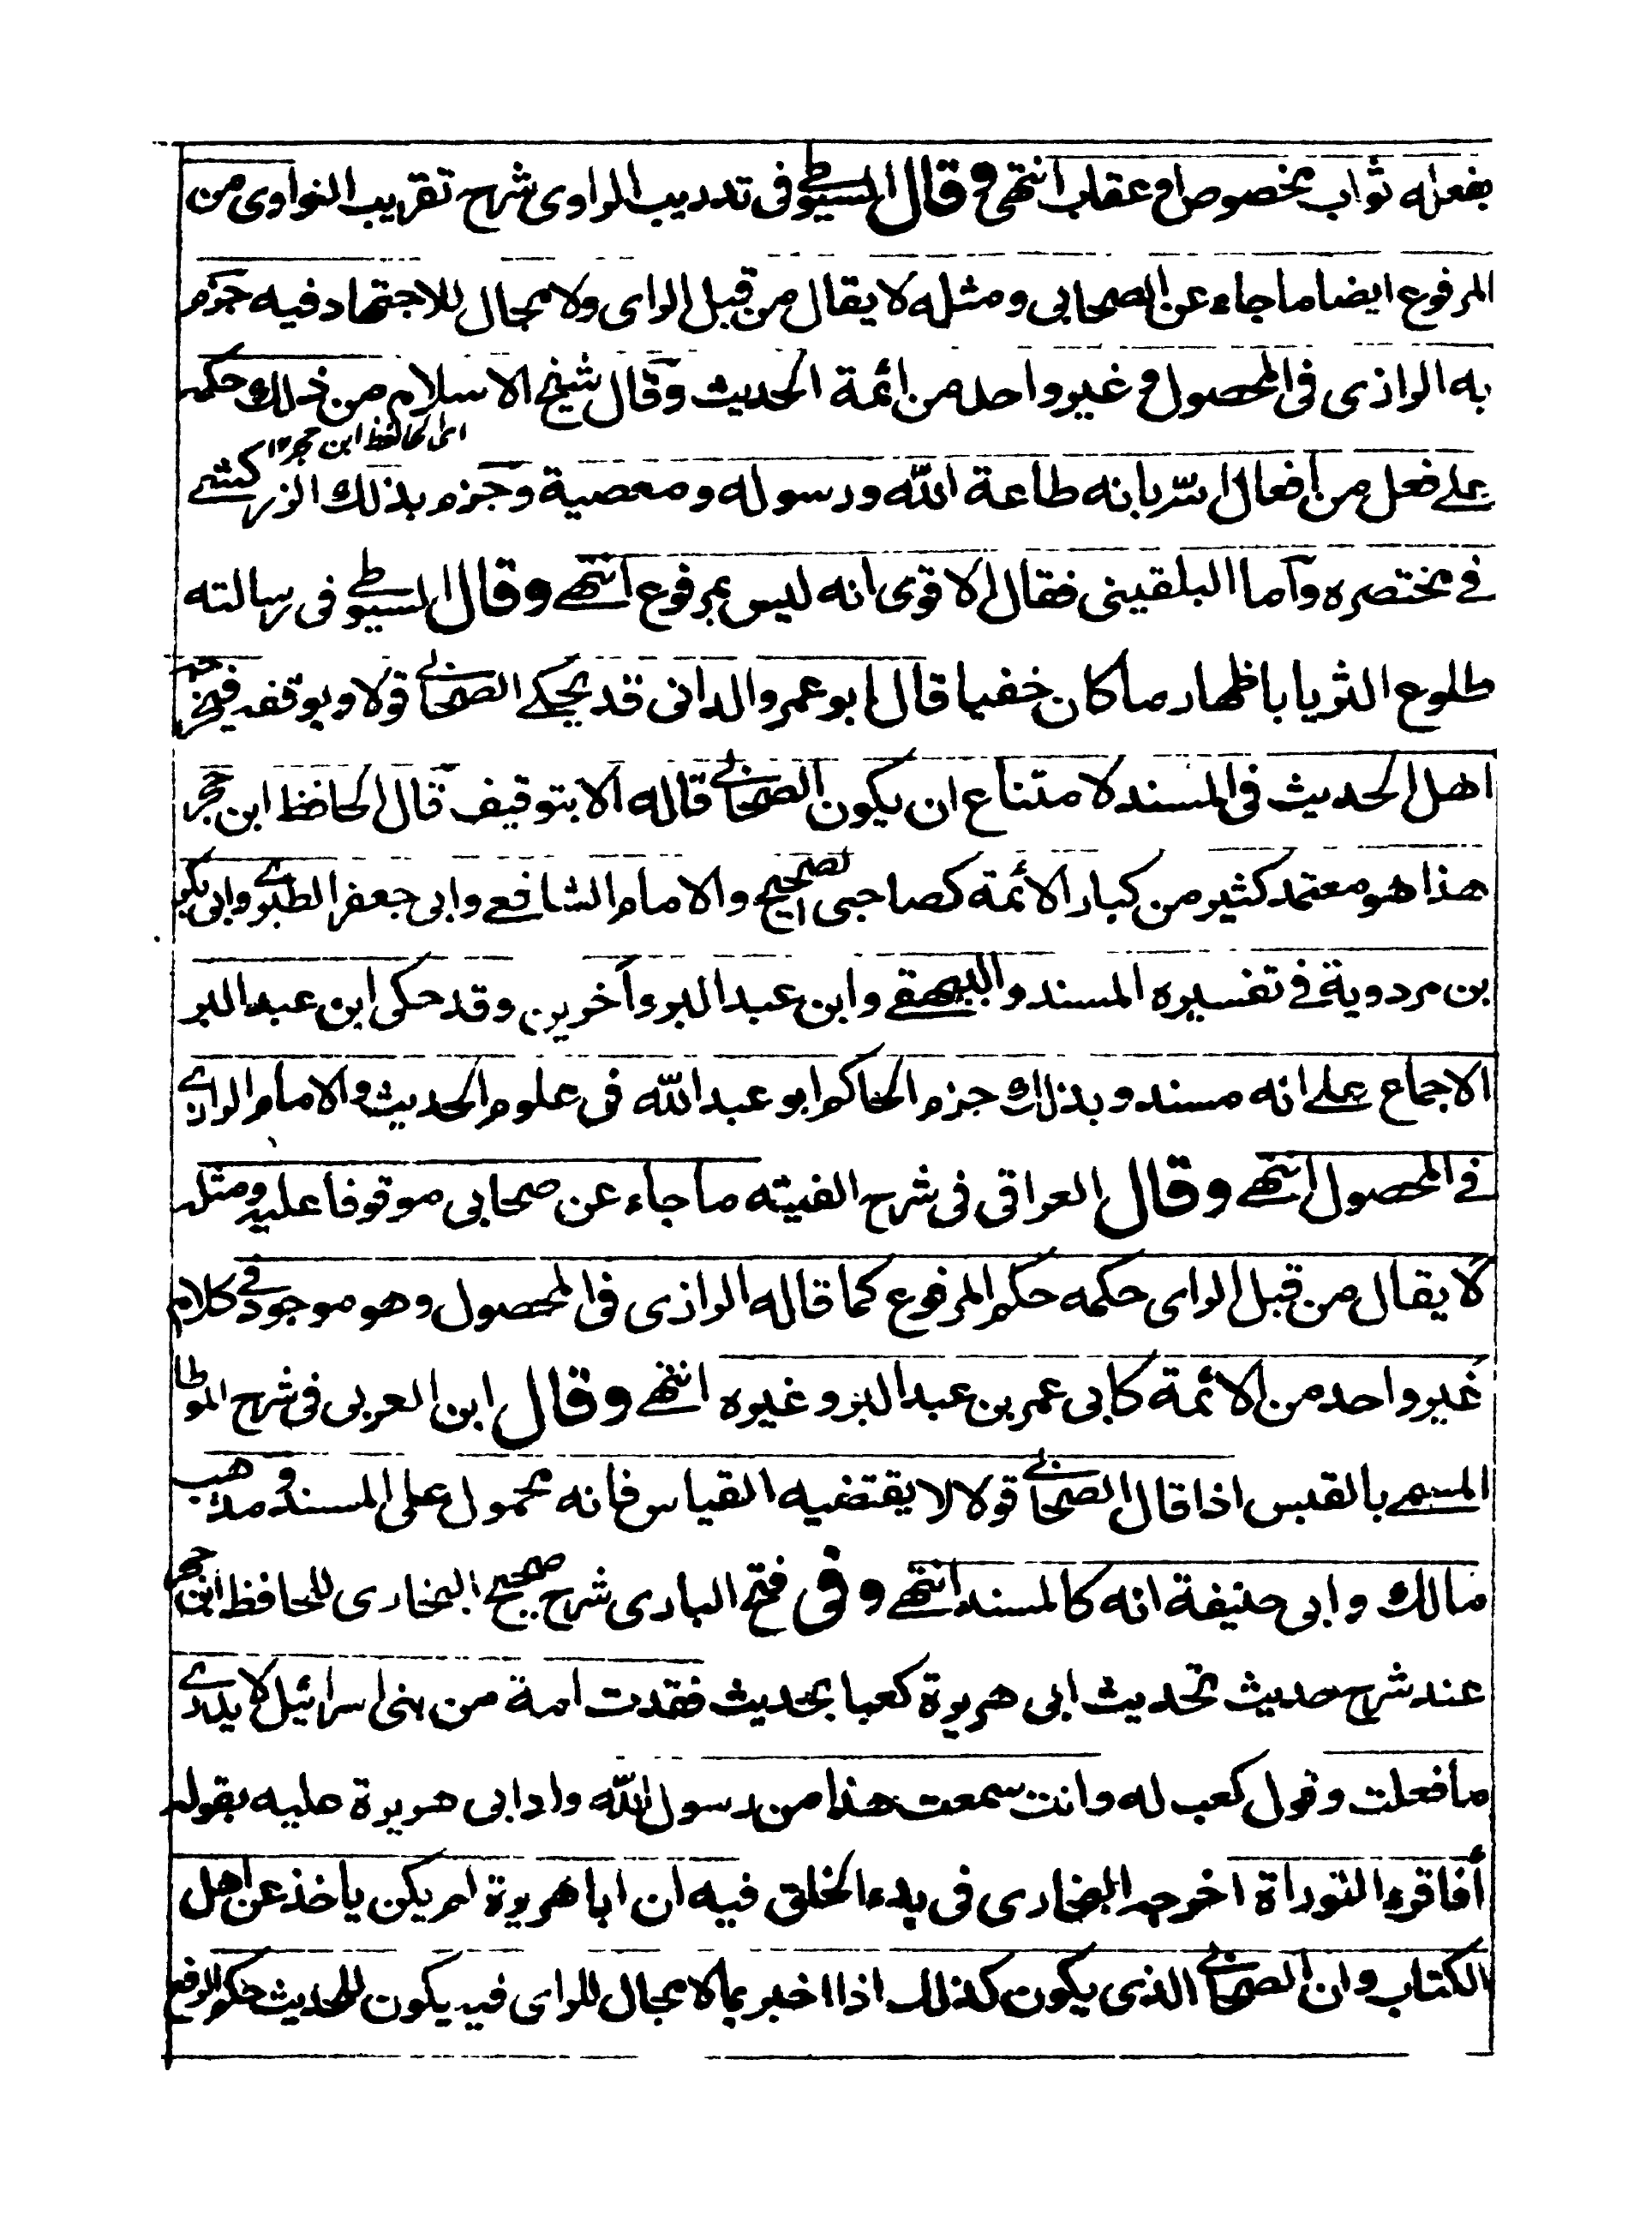 بفعله ثواب بخصوص او عقاب انتهى وقال السيوطى فى تدريب الراوى شرح تقريب النواوى من
المرفوع ايضا ما جاء عن الصحابى ومثله لا يقال من قبل الراى ولا مجال للاجتهاد فيه جزم
به الرازى فى المحصول وغير واحد من ائمة الحديث وقال شيخ الاسلام من ذلك حكمه
اى الحافظ ابن حجر ١٢
على فعل من افعال البر بانه طاعة الله ورسوله ومعصية وجزم بذلك الزركشے
فے مختصره وآما البلقينى فقال الاقوى انه ليس بمرفوع انتهے وقال السيوطے فى رسالته
طلوع الثريا باظهار ما كان خفيا قال ابو عمرو الدانى قد يحكے الصحابے قولا ويوقفه فيخرجه
اهل الحديث فى المسند لامتناع ان يكون الصحابے قاله الا بتوقيف قال الحافظ ابن حجر
هذا هو معتمد كثير من كبار الائمة كصاحبى الصحيح والامام الشافعے وابى جعفر الطبرے وابى بكر
بن مردوية فے تفسيره المسند والبيهقے وابن عبد البر وآخرين وقد حكى ابن عبد البر
الاجماع علے انه مسند وبذلك جزم الحاكم ابو عبد الله فى علوم الحديث والامام الرازے
فے المحصول انتهے وقال العراقى فى شرح الفيته ما جاء عن صحابى موقوفا عليه ومثله
لا يقال من قبل الراى حكمه حكم المرفوع كما قاله الرازى فى المحصول وهو موجود فے كلام
غير واحد من الائمة كابى عمر بن عبد البر وغيره انتهے وقال ابن العربى فى شرح الموطا
المسمے بالقبس اذا قال الصحابے قولا لا يقتضيه القياس فانه محمول على المسند ومذهب
مالك وابى حنيفة انه كالمسند انتهے وفى فتح البارى شرح صحيح البخارى للحافظ ابن حجر
عند شرح حديث تحديث ابى هريرة كعبا بحديث فقدت امة من بنى اسرائيل لا يدرے
ما فعلت وقول كعب له وانت سمعت هذا من رسول الله وردابى هريرة عليه بقوله
أفاقرء التوراة اخرجه البخارى فى بدء الخلق فيه ان ابا هريرة لم يكن ياخذ عن اهل
الكتاب وان الصحابے الذى يكون كذلك اذا اخبر بما لا مجال للراى فيه يكون للحديث حكم الرفع